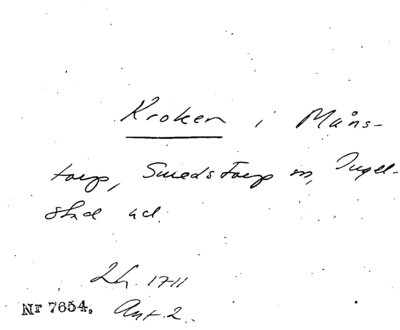 Kroken i Måns-
torp, Smedstorp sn, Ingel-
stad hd.
Lh. 1711
Nr 7654. Ant. 2.